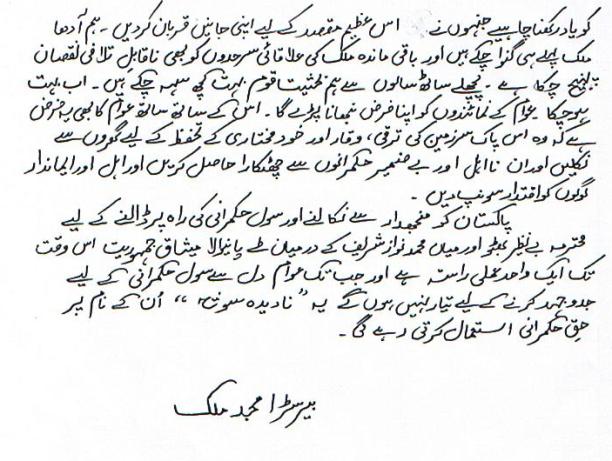 کو یاد رکھنا چاہیے جنہوں نے اس عظیم مقصد کے لیے اپنی جانیں قربان کر دیں۔ ہم آدھا
ملک پہلے ہی گنوا چکے ہیں اور باقی ماندہ ملک کی علاقائی سرحدوں کو بھی ناقابلِ تلافی نقصان
پہنچ چکا ہے۔ پچھلے ساٹھ سالوں سے ہم بحثیت قوم بہت کچھ سہہ چکے ہیں۔ اب بہت
ہو چکا عوام کے نمائندوں کو اپنا فرض نبھانا پڑے گا۔ اس کے ساتھ ساتھ عوام کا بھی یہ فرض
ہے کہ وہ اس پاک سرزمین کی ترقی، وقار اور خود مختاری کے تحفظ کے لیے گھروں سے
نکلیں اور ان نااہل اور بے ضمیر حکمرانوں سے چھٹکارا حاصل کریں اور اہل اور ایماندار
لوگوں کو اقتدار سونپ دیں۔
پاکستان کو منجھدار سے نکالنے اور سول حکمرانی کی راہ پر ڈالنے کے لیے
محترمہ بے نظیر بھٹو اور میاں محمد نواز شریف کے درمیان طے پانے والا میثاق جمہوریت اس وقت
تک ایک واحد عملی راستہ ہے اور جب تک عوام دل سے سول حکمرانی کے لیے
جدوجہد کرنے کے لیے تیار نہیں ہوں گے یہ "نادیدہ قوت" اُن کے نام پر
حق حکمرانی استعمال کرتی رہے گی۔
بیرسٹر امجد ملک